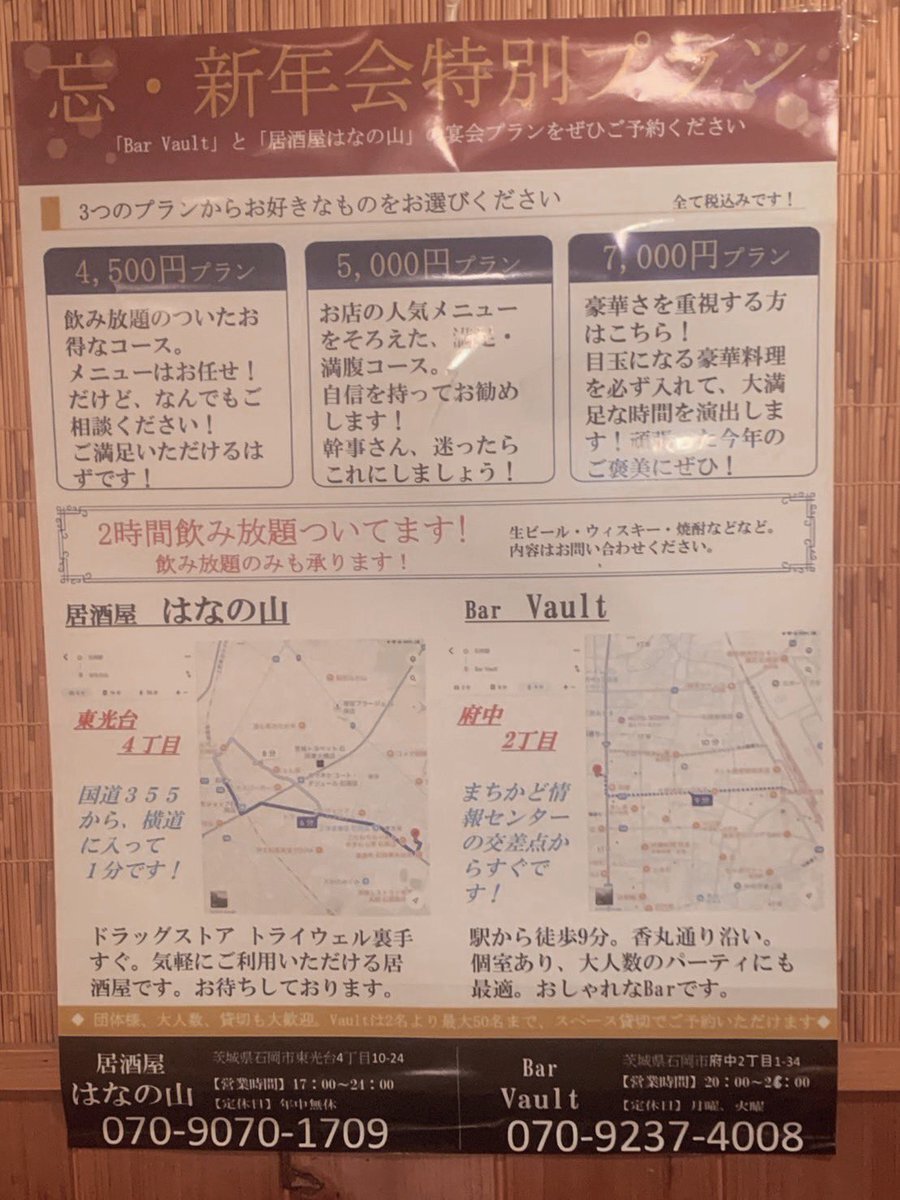 忘・新年会特別プラン
「Bar Vault」と「居酒屋はなの山」の宴会プランをぜひご予約ください
3つのプランからお好きなものをお選びください
全て税込みです！
4,500円プラン
飲み放題のついたお
得なコース。
メニューはお任せ！
だけど、なんでもご
相談ください！
ご満足いただけるは
ずです！
5,000円プラン
お店の人気メニュー
をそろえた、満足・
満腹コース。
自信を持ってお勧め
します！
幹事さん、迷ったら
これにしましょう！
7,000円プラン
豪華さを重視する方
はこちら！
目玉になる豪華料理
を必ず入れて、大満
足な時間を演出しま
す！頑張った今年の
ご褒美にぜひ！
2時間飲み放題ついてます！
飲み放題のみも承ります！
生ビール・ウィスキー・焼酎などなど。
内容はお問い合わせください。
居酒屋 はなの山
東光台
4丁目
国道３５５
から、横道
に入って
１分です！
8分
6分
ドラッグストア トライウェル裏手
すぐ。気軽にご利用いただける居
酒屋です。お待ちしております。
Bar Vault
府中
2丁目
まちかど情
報センター
の交差点か
らすぐで
す！
10分
9分
駅から徒歩9分。香丸通り沿い。
個室あり、大人数のパーティにも
最適。おしゃれなBarです。
◆ 団体様、大人数、貸切も大歓迎。Vaultは2名より最大50名まで、スペース貸切でご予約いただけます◆
居酒屋
はなの山
茨城県石岡市東光台4丁目10-24
【営業時間】17：00～24：00
【定休日】年中無休
070-9070-1709
Bar
Vault
茨城県石岡市府中2丁目1-34
【営業時間】20：00～
【定休日】月曜、火曜
070-9237-4008